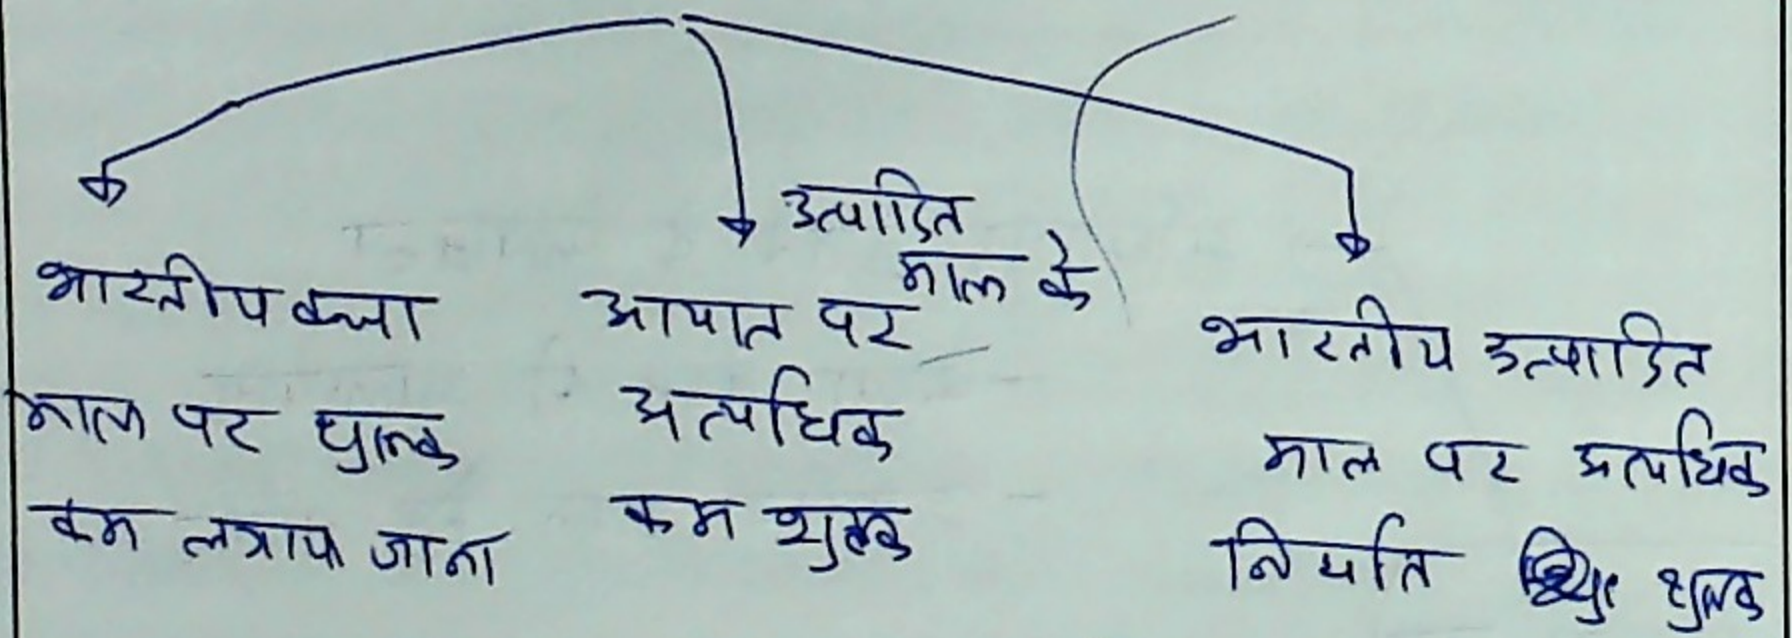 भारतीय कच्चा
माल पर शुल्क
कम लगाया जाना
उत्पादित
माल के
आयात पर
अत्यधिक
कम शुल्क
भारतीय उत्पादित
माल पर अत्यधिक
निर्यात शुल्क